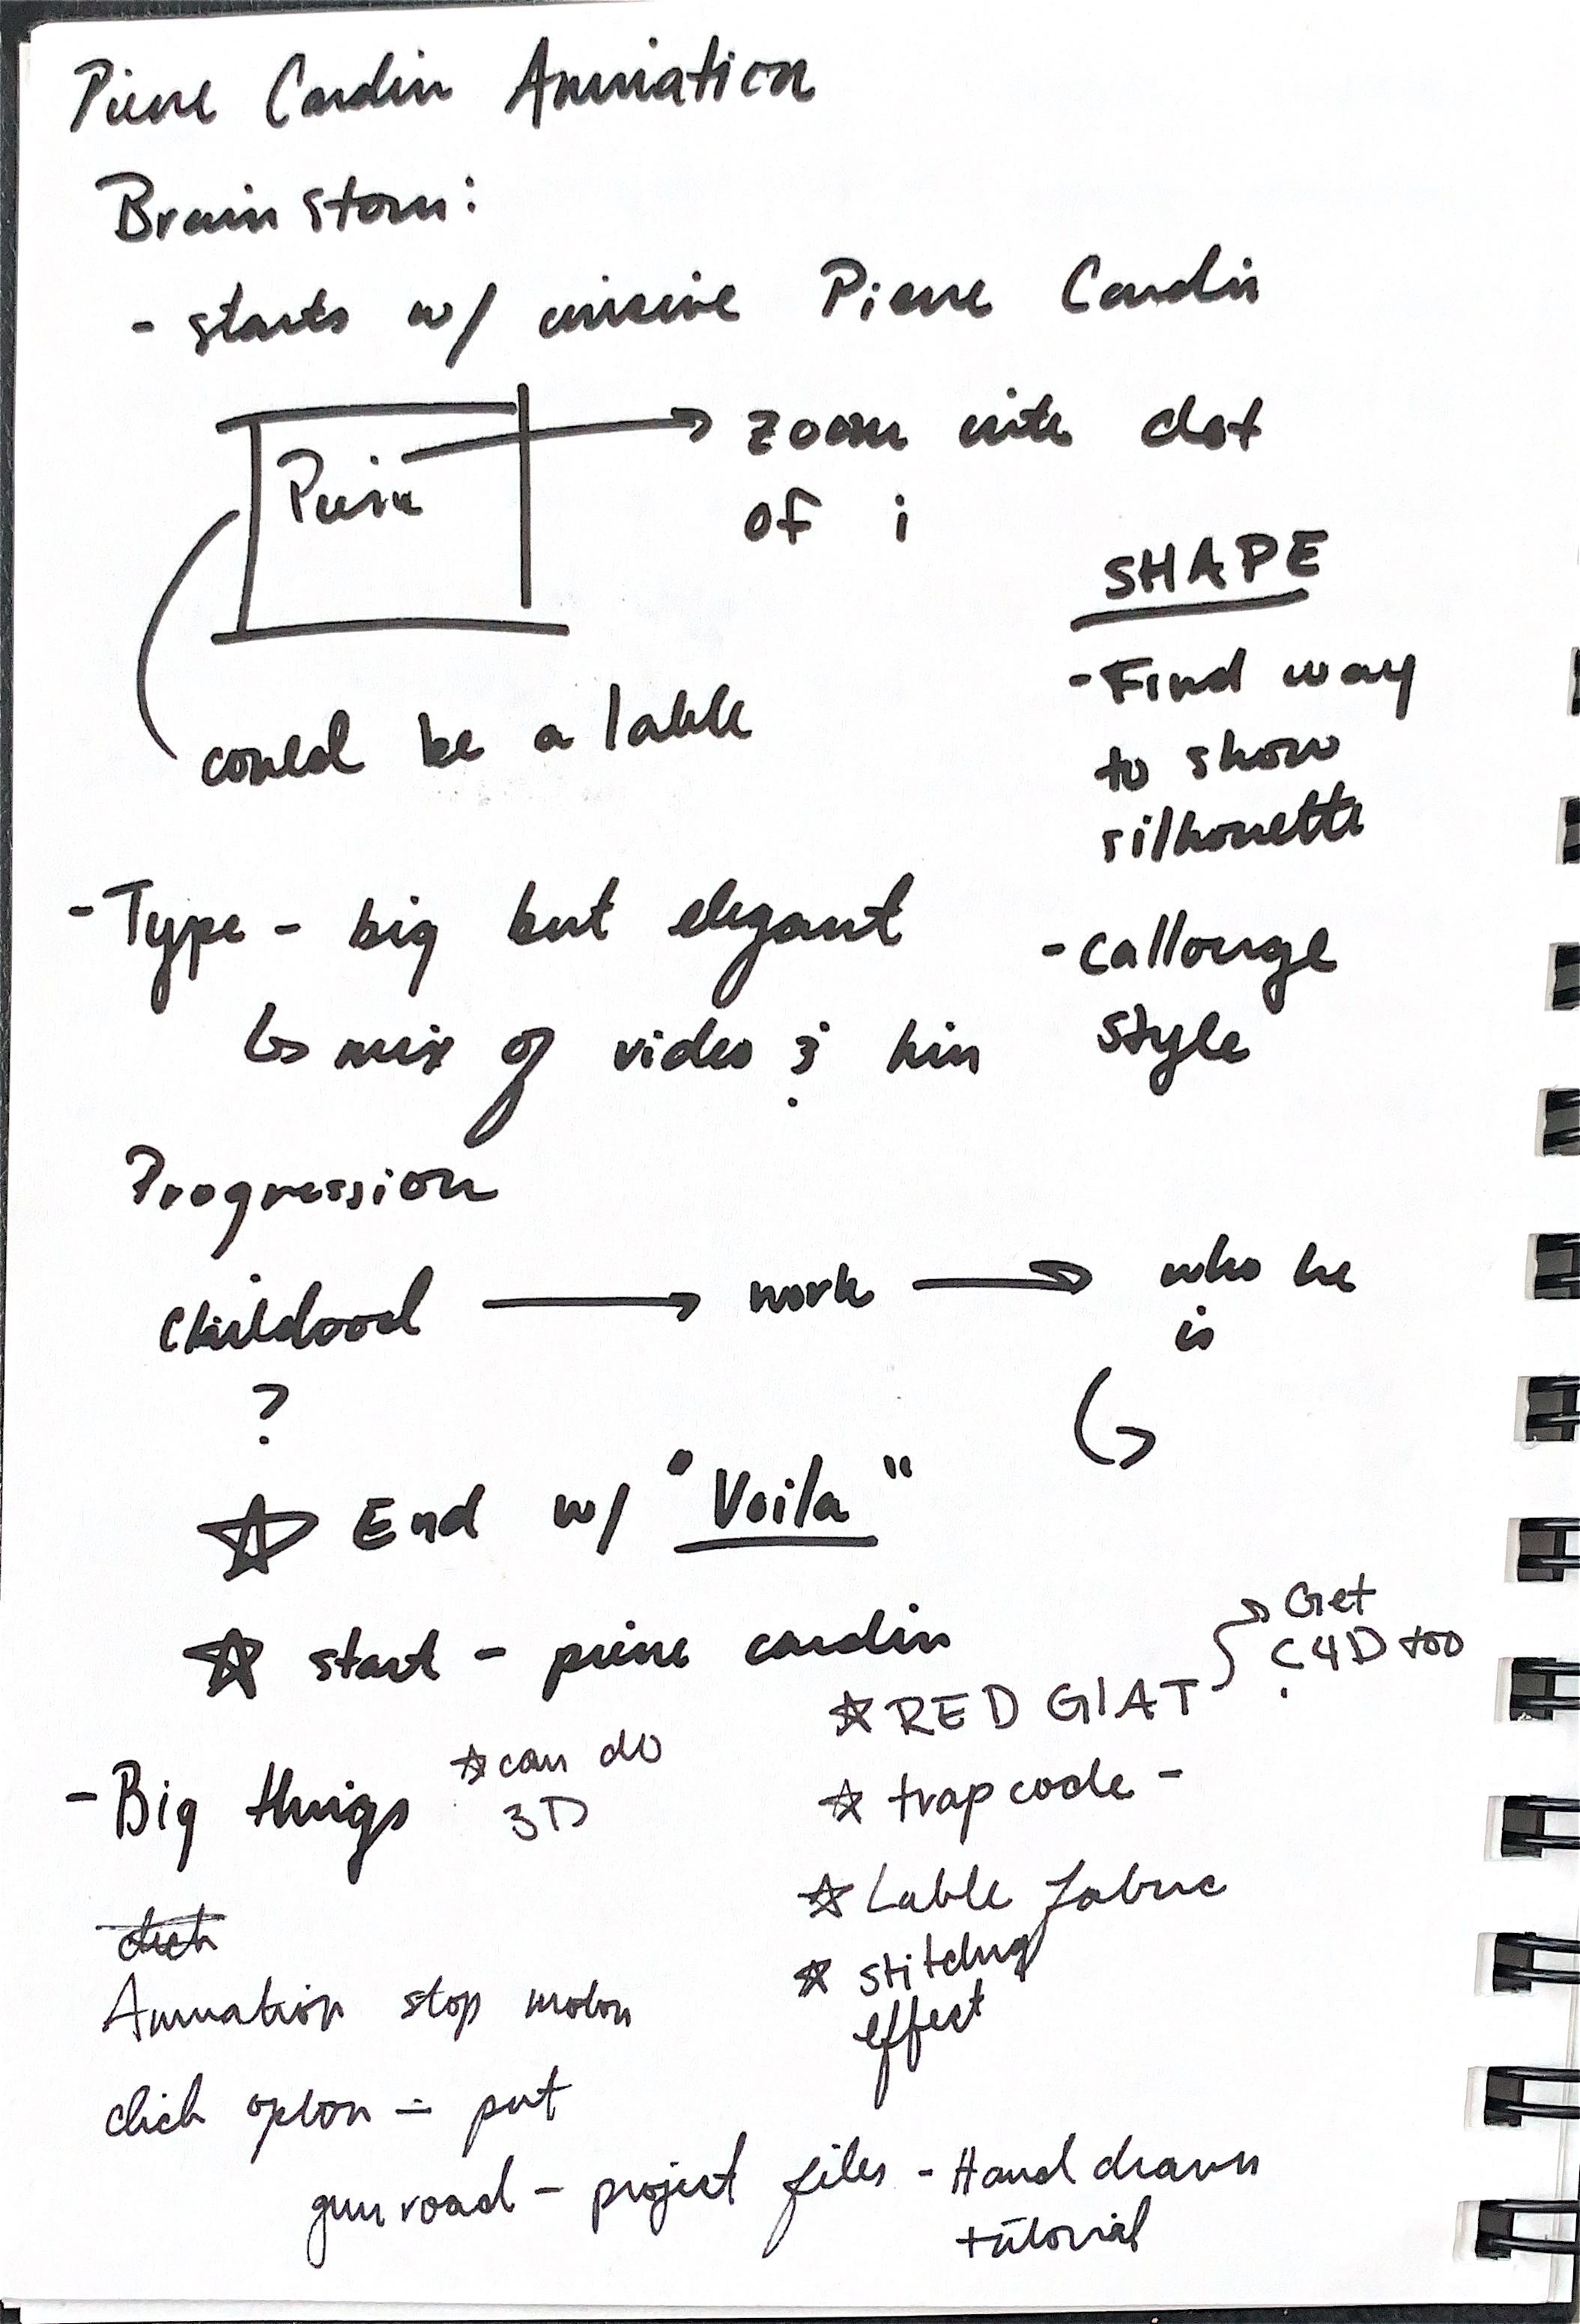 Pierre Cardin Animation
Brain storm:
- starts w/ cursive Pierre Cardin
Pierre
zoom into dot
of i
could be a lable
SHAPE
- Find way
to show
silhouette
- callouge
style
- Type - big but elegant
↳ mix of video & him
Progression
Childood → work → who he
is
?
☆ End w/ "Voila"
☆ start - pierre cardin
- Big things
☆ can do
3D
☆ RED GIAT
Get
C4D too
☆ trapcode -
☆ Lable fabric
☆ stitching
effect
Animation stop motion
click option = put
gum road - project files - Hand drawn
tutorial